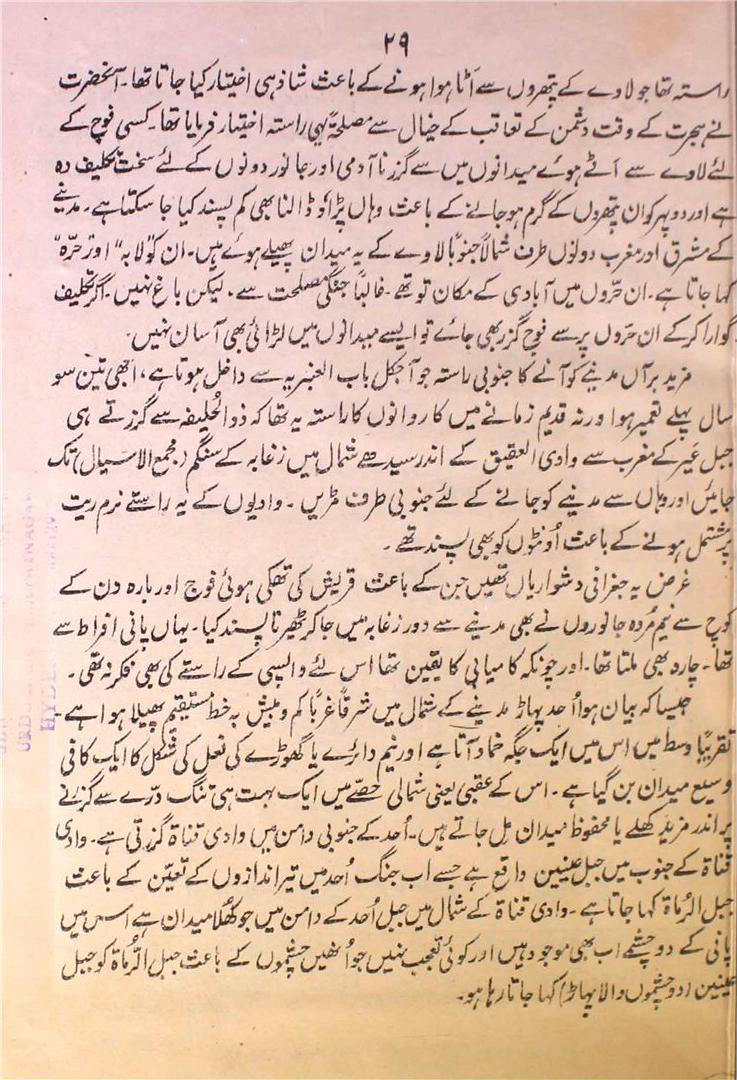 ۲۹
راستہ تھا جو لاوے کے پتھروں سے اَٹا ہوا ہونے کے باعث شاذ ہی اختیار کیا جاتا تھا۔ آنحضرت
نے ہجرت کے وقت دشمن کے تعاقب کے خیال سے مصلحۃً یہی راستہ اختیار فرمایا تھا۔ کسی فوج کے
لئے لاوے سے اَٹے ہوئے میدانوں میں سے گزرنا آدمی اور جانور دونوں کے لئے سخت تکلیف دہ
ہے اور دوپہر کو ان پتھروں کے گرم ہو جانے کے باعث وہاں پڑاؤ ڈالنا بھی کم پسند کیا جا سکتا ہے۔ مدینے
کے مشرق اور مغرب دونوں طرف شمالاً جنوباً لاوے کے یہ میدان پھیلے ہوئے ہیں۔ ان کو ”لابہ“ اور ”حرّہ“
کہا جاتا ہے۔ ان حرّوں میں آبادی کے مکان تو تھے۔ غالباً جنگی مصلحت سے، لیکن باغ نہیں۔ اگر تکلیف
گوارا کر کے ان حرّوں پر سے فوج گزر بھی جائے تو ایسے میدانوں میں لڑائی بھی آسان نہیں۔
مزید برآں مدینے کو آنے کا جنوبی راستہ جو آجکل باب العنبریہ سے داخل ہوتا ہے، ابھی تین سو
سال پہلے تعمیر ہوا ورنہ قدیم زمانے میں کاروانوں کا راستہ یہ تھا کہ ذوالحُلیفہ سے گزرتے ہی
جبل عَیر کے مغرب سے وادی العقیق کے اندر سیدھے شمال میں زغابہ کے سنگم (مجمع الاسیال) تک
جائیں اور وہاں سے مدینے کو جانے کے لئے جنوبی طرف مڑیں۔ وادیوں کے یہ راستے نرم ریت
پر مشتمل ہونے کے باعث اُونٹوں کو بھی پسند تھے۔
غرض یہ جغرافی دشواریاں تھیں جن کے باعث قریش کی تھکی ہوئی فوج اور بارہ دن کے
کوچ سے نیم مُردہ جانوروں نے بھی مدینے سے دور زغابہ میں جا کر ٹھیرنا پسند کیا۔ یہاں پانی افراط سے
تھا۔ چارہ بھی ملتا تھا۔ اور چونکہ کامیابی کا یقین تھا اس لئے واپسی کے راستے کی بھی فکر نہ تھی۔
جیسا کہ بیان ہوا اُحد پہاڑ مدینے کے شمال میں شرقاً غرباً کم و بیش بہ خط مستقیم پھیلا ہوا ہے۔
تقریباً وسط میں اس میں ایک جگہ خم آتا ہے اور نیم دائرے یا گھوڑے کی نعل کی شکل کا ایک کافی
وسیع میدان بن گیا ہے۔ اس کے عقبی یعنی شمالی حصے میں ایک بہت ہی تنگ درّے سے گزرنے
پر اندر مزید کھلے یا محفوظ میدان مل جاتے ہیں۔ اُحد کے جنوبی دامن میں وادی قناۃ گزرتی ہے۔ وادی
قناۃ کے جنوب میں جبل عینین واقع ہے جسے اب جنگ اُحد میں تیراندازوں کے تعیّن کے باعث
جبل الرُّماۃ کہا جاتا ہے۔ وادی قناۃ کے شمال میں جبل اُحد کے دامن میں جو کھُلا میدان ہے اس میں
پانی کے دو چشمے اب بھی موجود ہیں اور کوئی تعجب نہیں جو اُنھیں چشموں کے باعث جبل الرُّماۃ کو جبل
عینین (دو چشموں والا پہاڑ) کہا جاتا رہا ہو۔